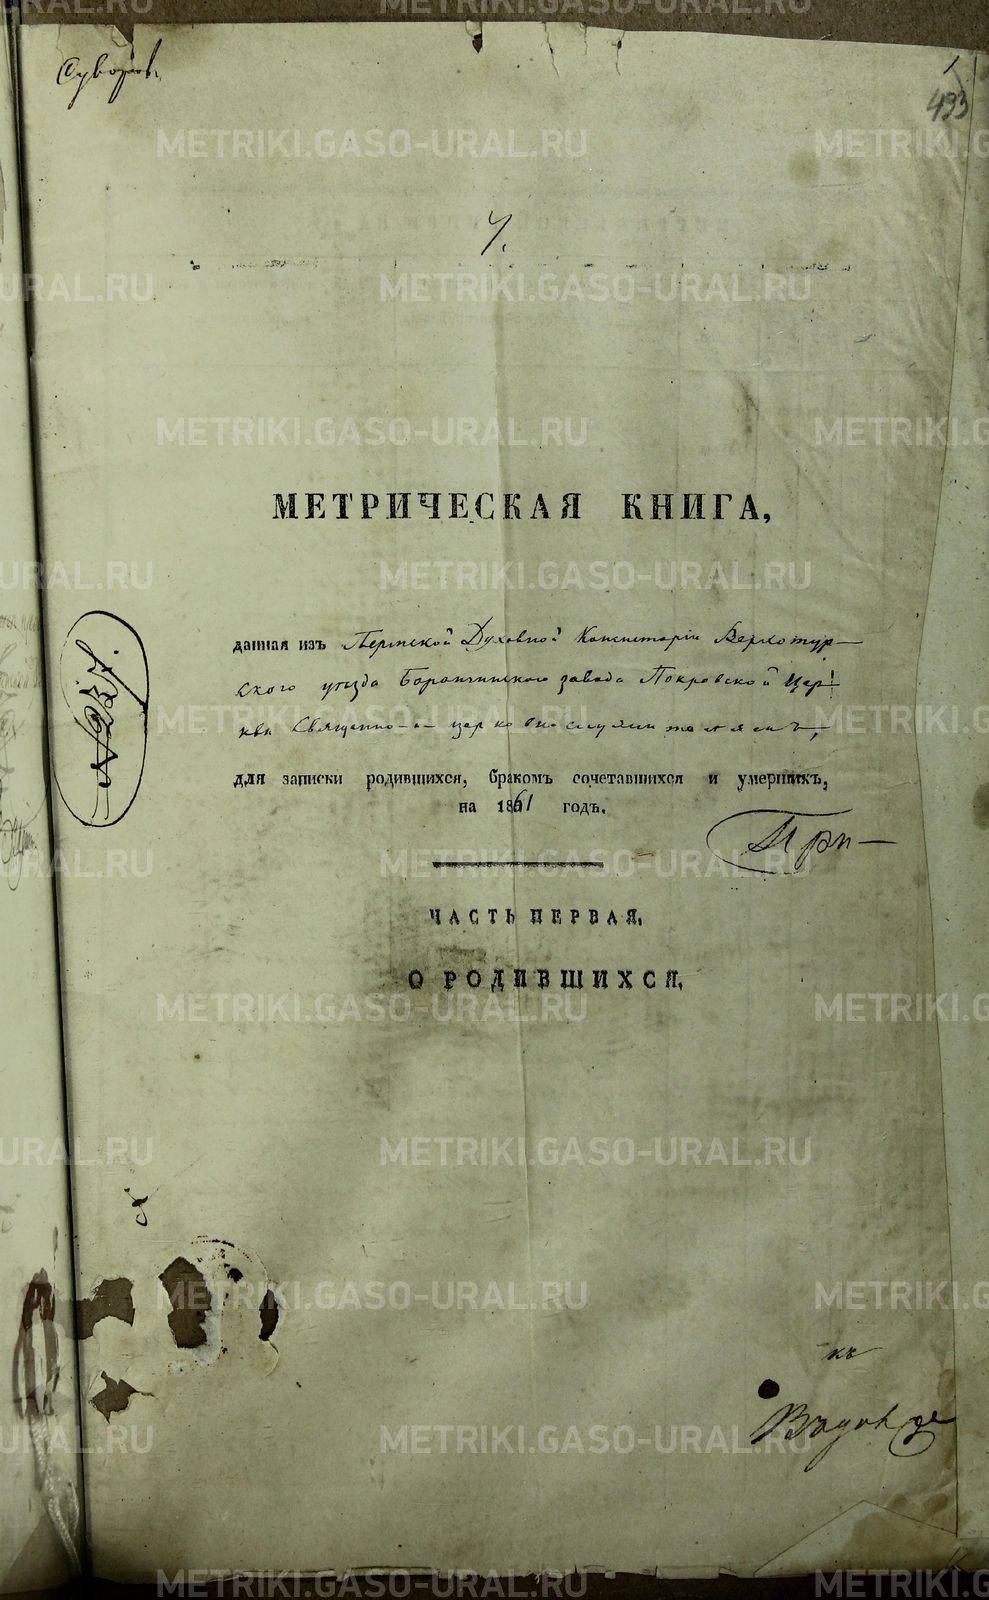 Суворовъ
1
433
4.
МЕТРИЧЕСКАЯ КНИГА,
данная изъ Пермской Духовной Консисторіи Верхотур-
скаго уѣзда Баранчинскаго завода Покровской Цер-
кви Священно-церковнослужителямъ,
для записки родившихся, бракомъ сочетавшихся и умершихъ,
на 1861 годъ.
При-
ЧАСТЬ ПЕРВАЯ,
О РОДИВШИХСЯ,
№ 237.
къ
METRIKI.GASO-URAL.RU